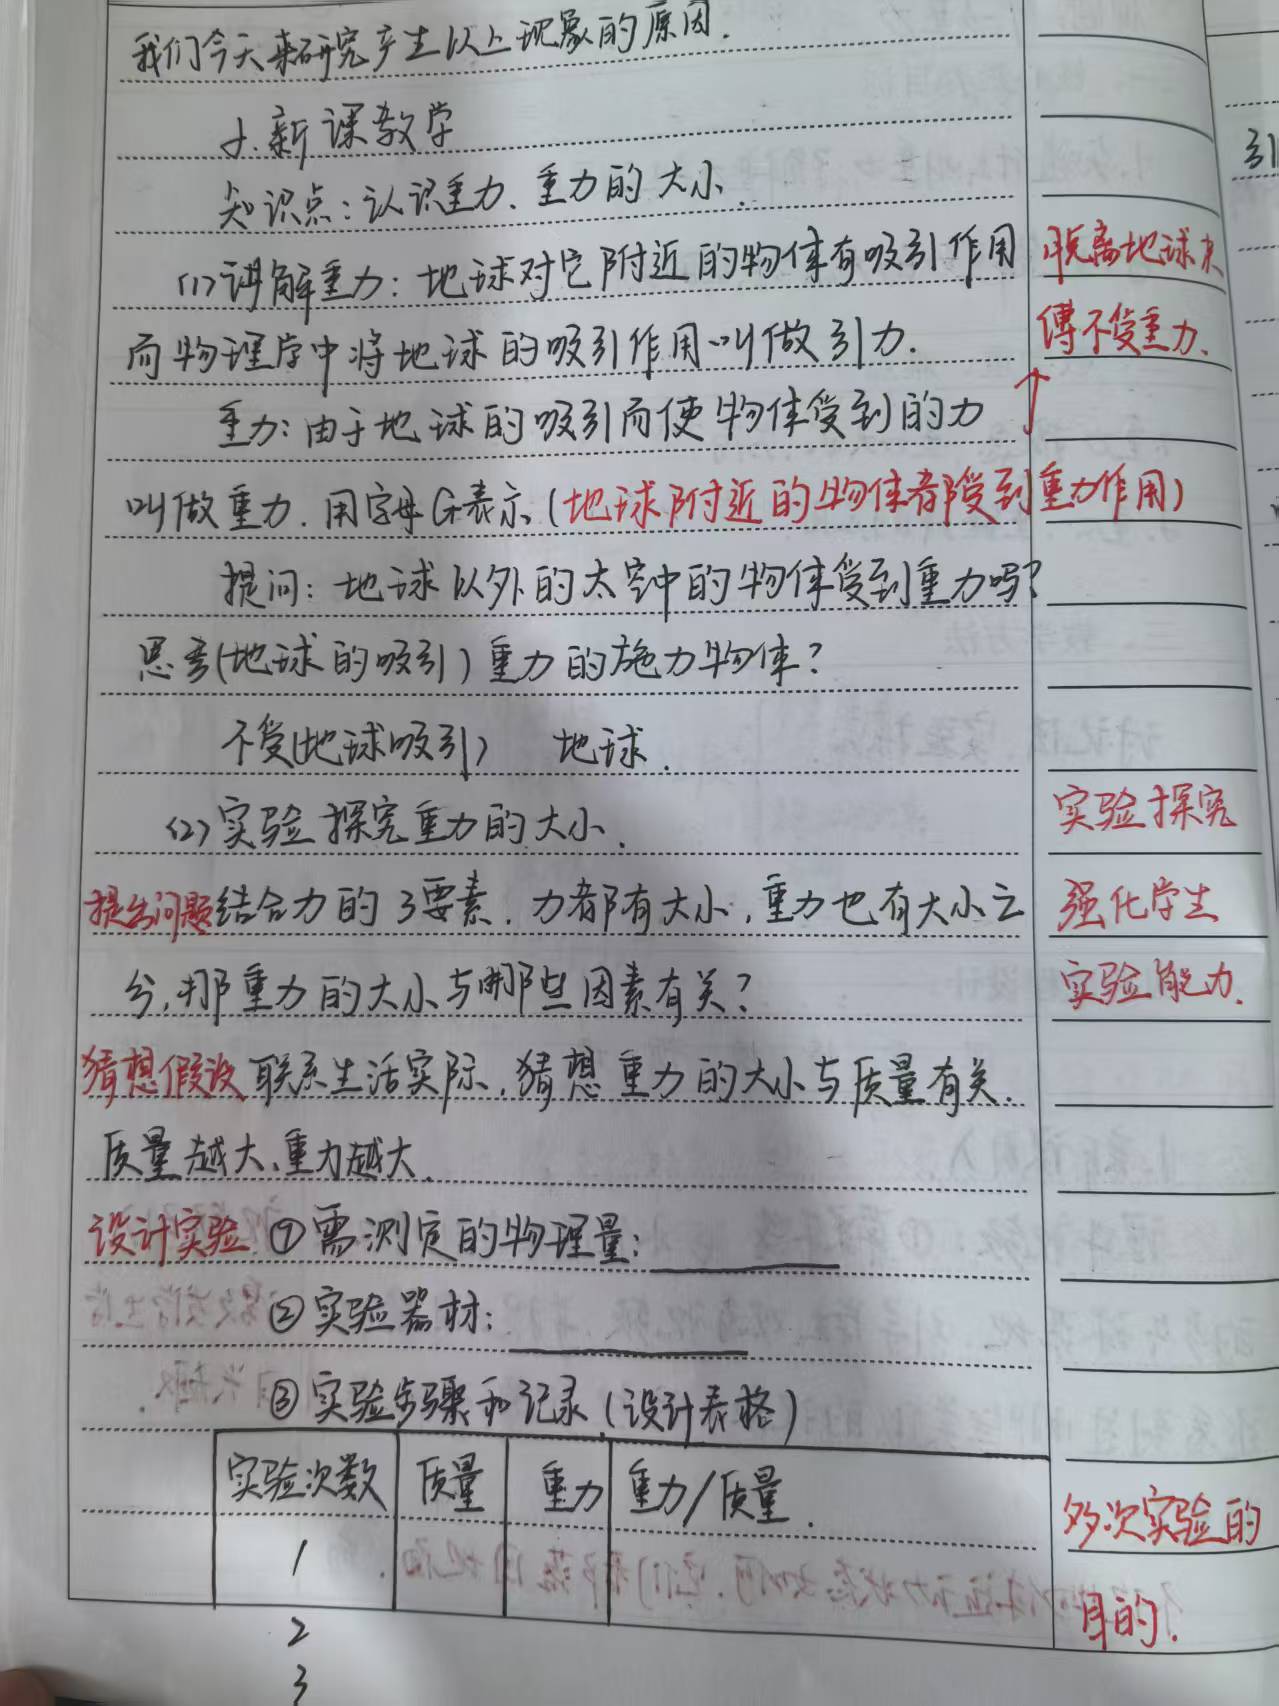 我们今天来研究产生以上现象的原因.
2.新课教学
知识点:认识重力、重力的大小.
(1)讲解重力:地球对它附近的物体有吸引作用
而物理学中将地球的吸引作用叫做引力.
重力:由于地球的吸引而使物体受到的力
叫做重力.用字母G表示(地球附近的物体都受到重力作用)
提问:地球以外的太空中的物体受到重力吗?
思考(地球的吸引)重力的施力物体?
不受(地球吸引) 地球.
(2)实验探究重力的大小.
提出问题 结合力的3要素.力都有大小,重力也有大小之
分,那重力的大小与哪些因素有关?
猜想假设 联系生活实际,猜想重力的大小与质量有关.
质量越大、重力越大.
设计实验 ①需测定的物理量:
②实验器材:
③实验步骤和记录(设计表格)
实验次数 质量 重力 重力/质量.
1
2
3
脱离地球束
缚不受重力.
↑
实验探究
强化学生
实验能力.
多次实验的
目的.
引